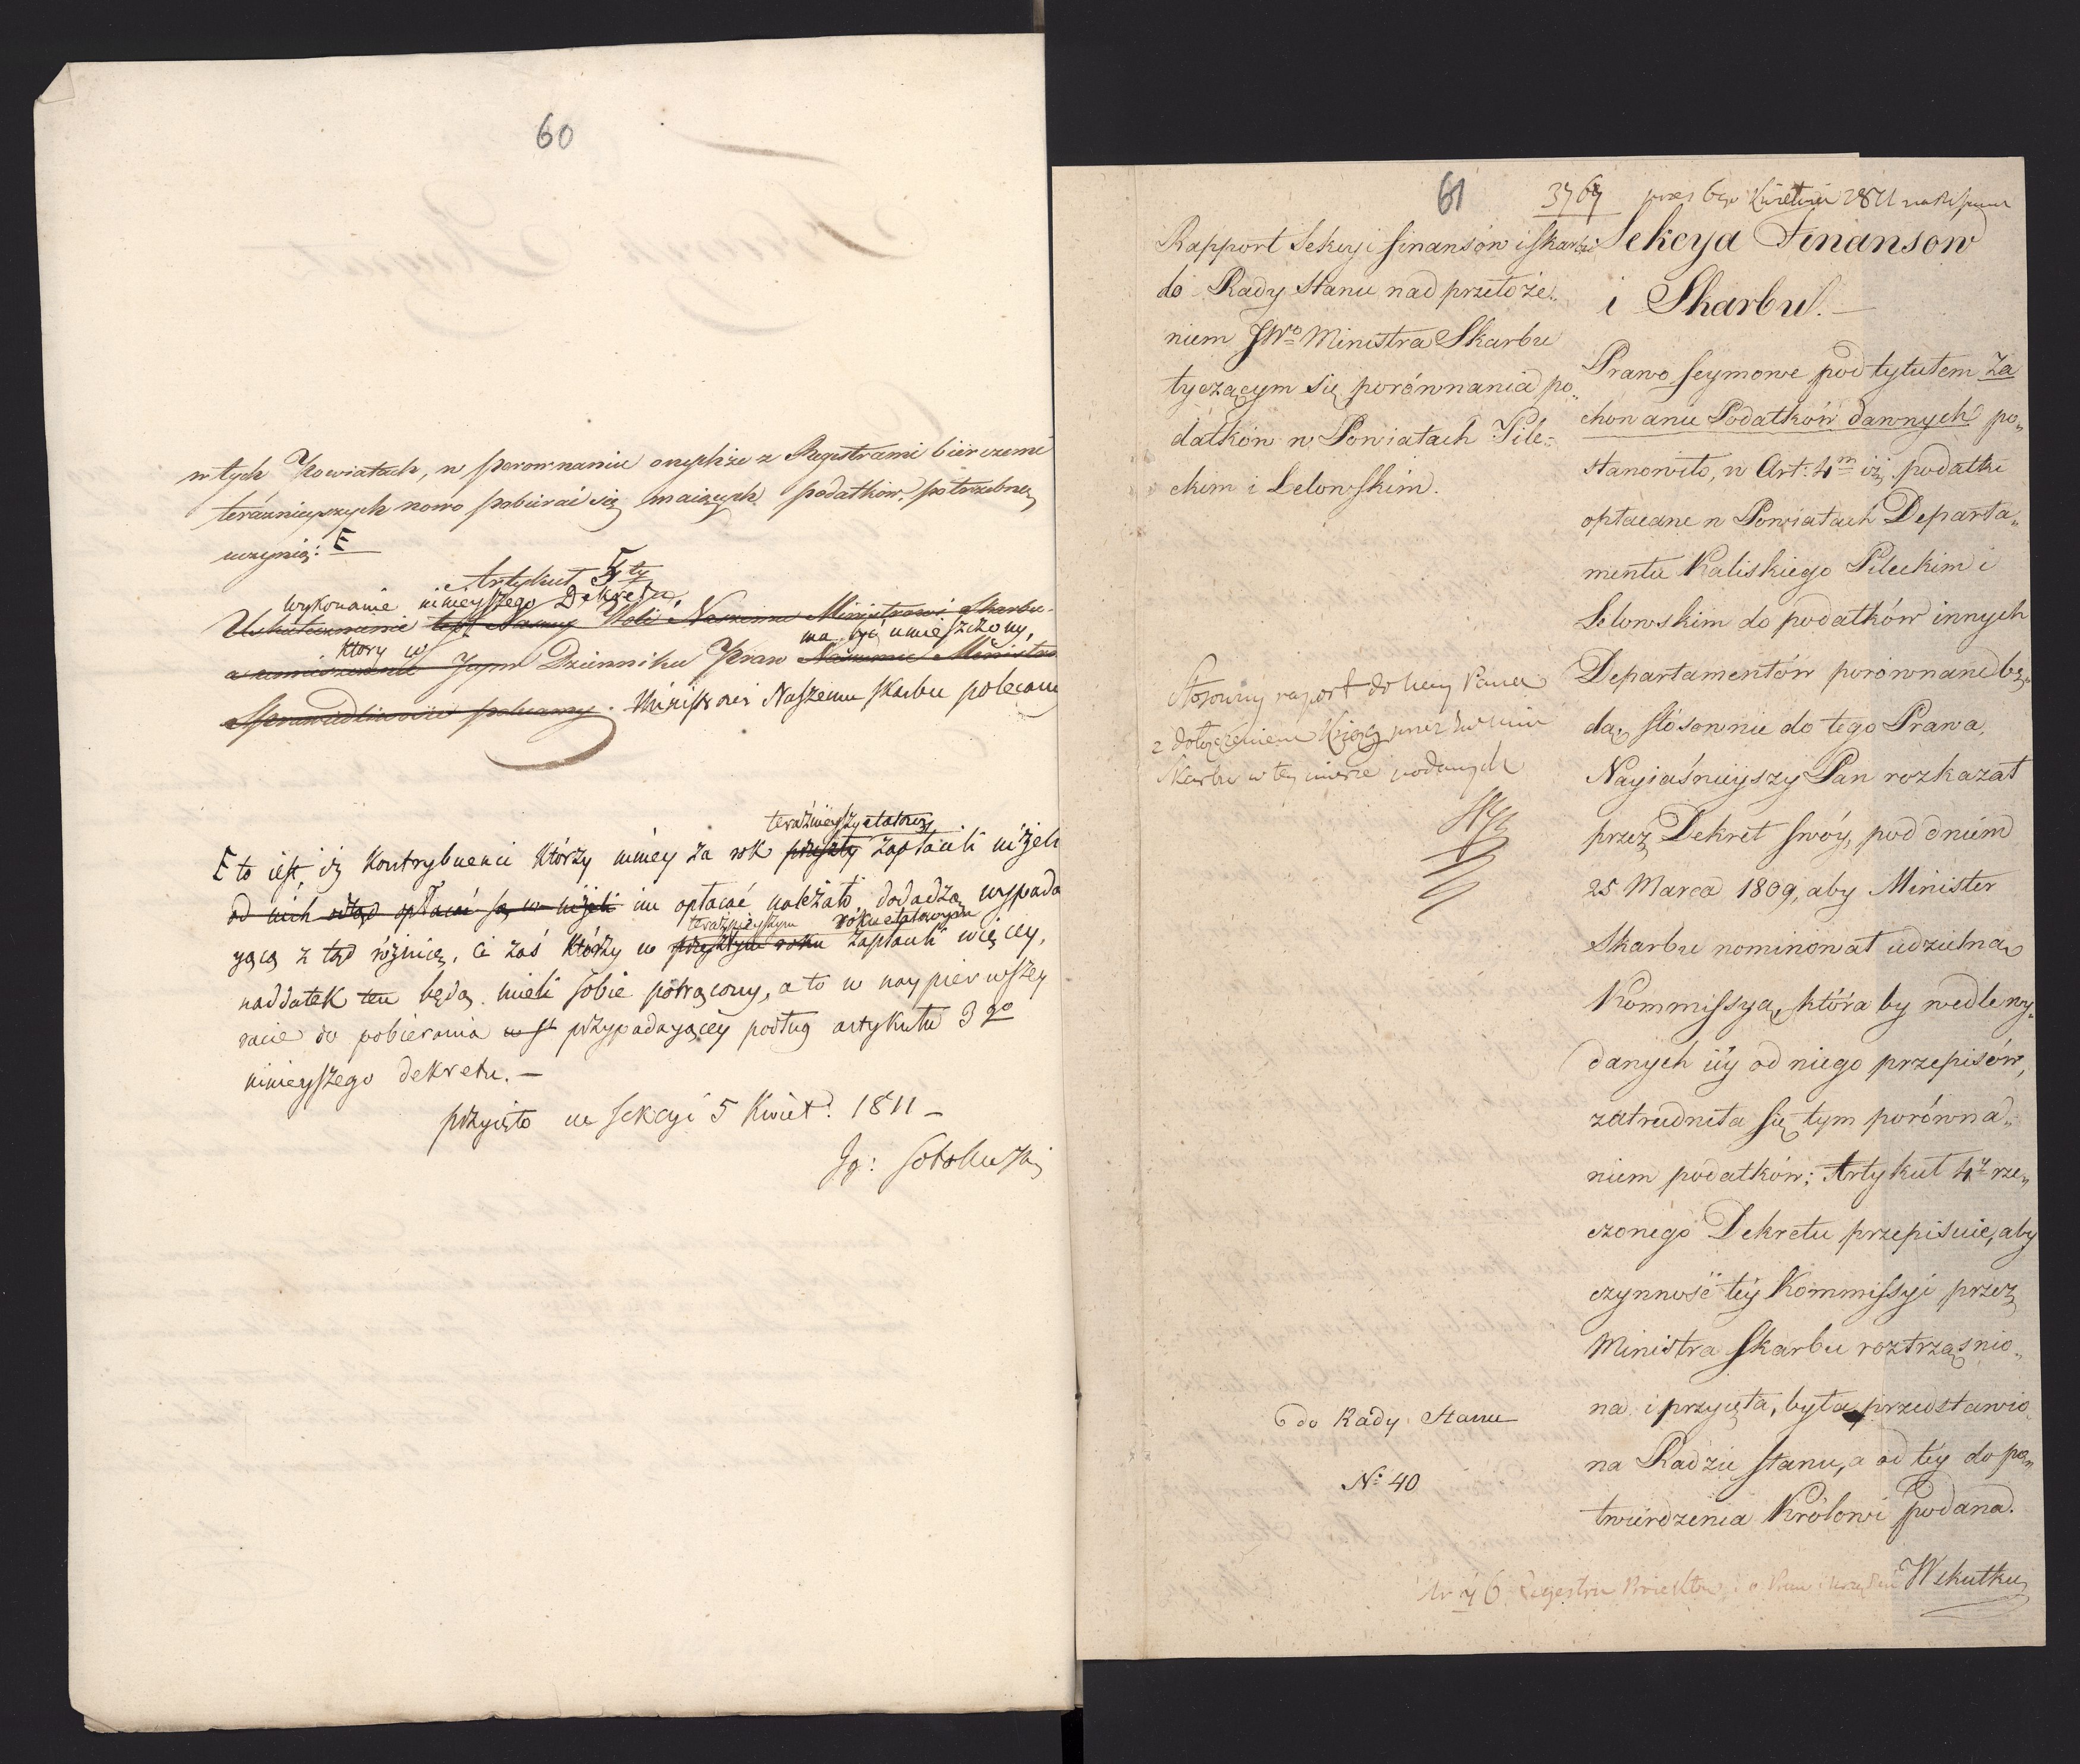 60
w tych Powiatach, w porownaniu onychże z Registrami bierczemi
teraznieyszych nowo pobierać się maiących podatków potrzebnej
uczynią: E
Artykuł 5ty
wykonanie ninieyszego Dekretu,
Uskutecznienie tey Naszey Woli Naszemu Ministrowi Skarbu
który w ma być umieszczony,
a umieszczenie Dzienniku Praw Naszemu Ministro
Sprawiedliwości polecamy. Ministrowi Naszemu Skarbu polecamy
teraźnieyszy etatowy
E to iest, iż Kontrybuenci którzy mniey za rok przeszły zapłacili niżeli
od nich odtąd opłacać są w niżeli im opłacać należało, dodadzą wypada
teraźnieyszym roku etatowym
yącą z tąd różnicę, Ci zaś którzy w przeszłym roku zapłacili więcey,
naddatek ten będą mieli sobie potrącony, a to w naypierwszey
racie do pobierania w st przypadayącey podług artykułu 3go
ninieyszego dekretu. —
przyięto w Sekcyi 5 Kwiet: 1811 —
Ig: Sobolewski
61
3767 prze: 6go Kwietnia 1811
Rapport Sekcyi finansów i skarbu
do Rady Stanu nad przełoże„
niem JWo Ministra Skarbu
tyczącym się porównania po„
datków w Powiatach Pile„
ckim i Lelowskim.
Stosowny raport do Krola Pana
z dołączeniem Xiąg przez Ministra
Skarbu w tey mierze podanych
do Rady Stanu
No 40
Sekcya Finansow
i Skarbu. —
Prawo seymowe pod tytułem Za
chowaniu Podatków dawnych po„
stanowiło, w Art: 4m iż, podatki
opłacane w Powiatach Departa„
mentu Kaliskiego Pileckim i
Lelowskim do podatków innych
Departamentów porównane bę„
dą, stósownie do tego Prawa,
Nayiaśnieyszy Pan rozkazał
przez Dekret swóy, pod dniem
25 Marca 1809, aby Minister
Skarbu nominował udzielną
Kommissyą, która by wedle wy„
danych iéy od niego przepisów,
zatrudniła się tym porówna„
niem podatków; Artykuł 4y rze„
czonego Dekretu przepisuie, aby
czynność téy Kommissyi przez
Ministra Skarbu roztrząśnio„
na i przyięta, była przedstawio„
na Radzie Stanu, a od tey do po„
twierdzenia Królowi podana.
W skutku
Nr 76 Regestru Proiektów